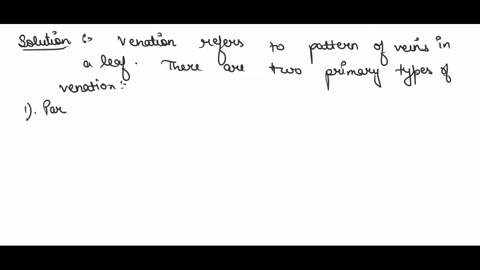 Solution :- Venation refers to pattern of veins in
a leaf. There are two primary types of
venation:-
1). Par